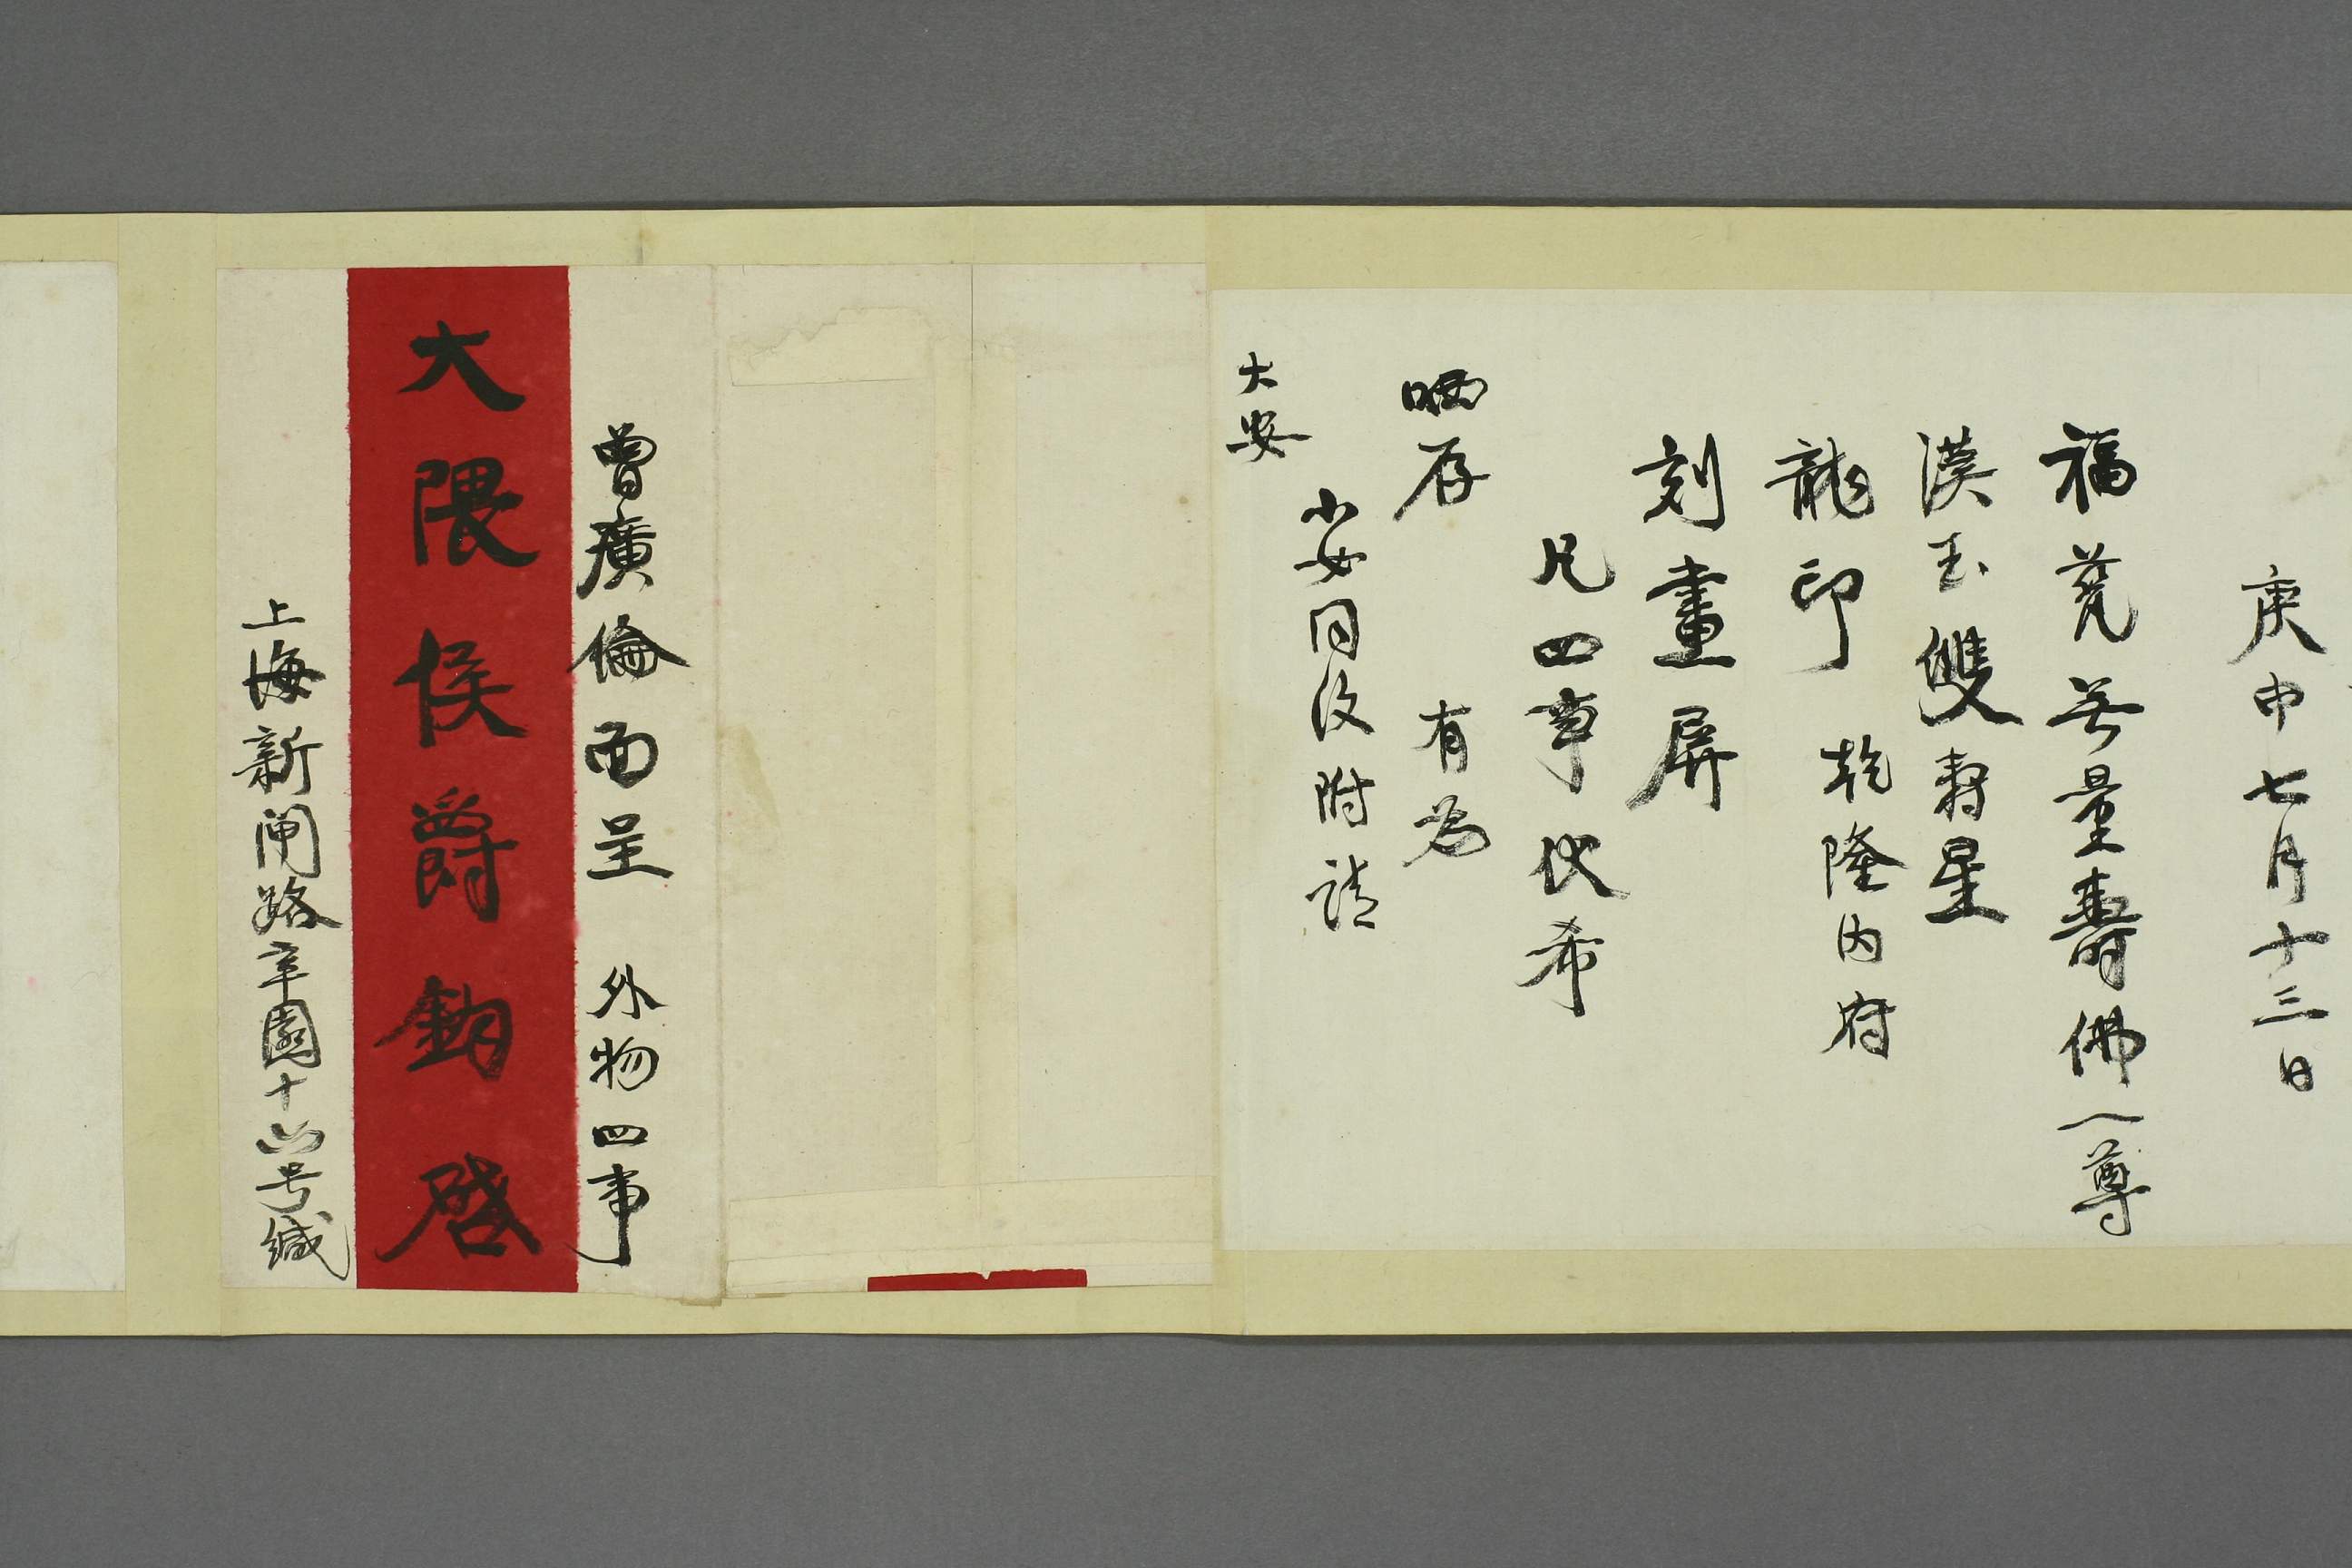 庚申七月十三日
福荒無量壽佛一尊
漢玉雙壽星
龍印 乾隆内府
刻畫屏
凡四事伏希
哂存 有为
小女同復附請
大安
曾廣倫面呈 外物四事
大隈侯爵鈞啓
上海新閘路辛園十六号緘